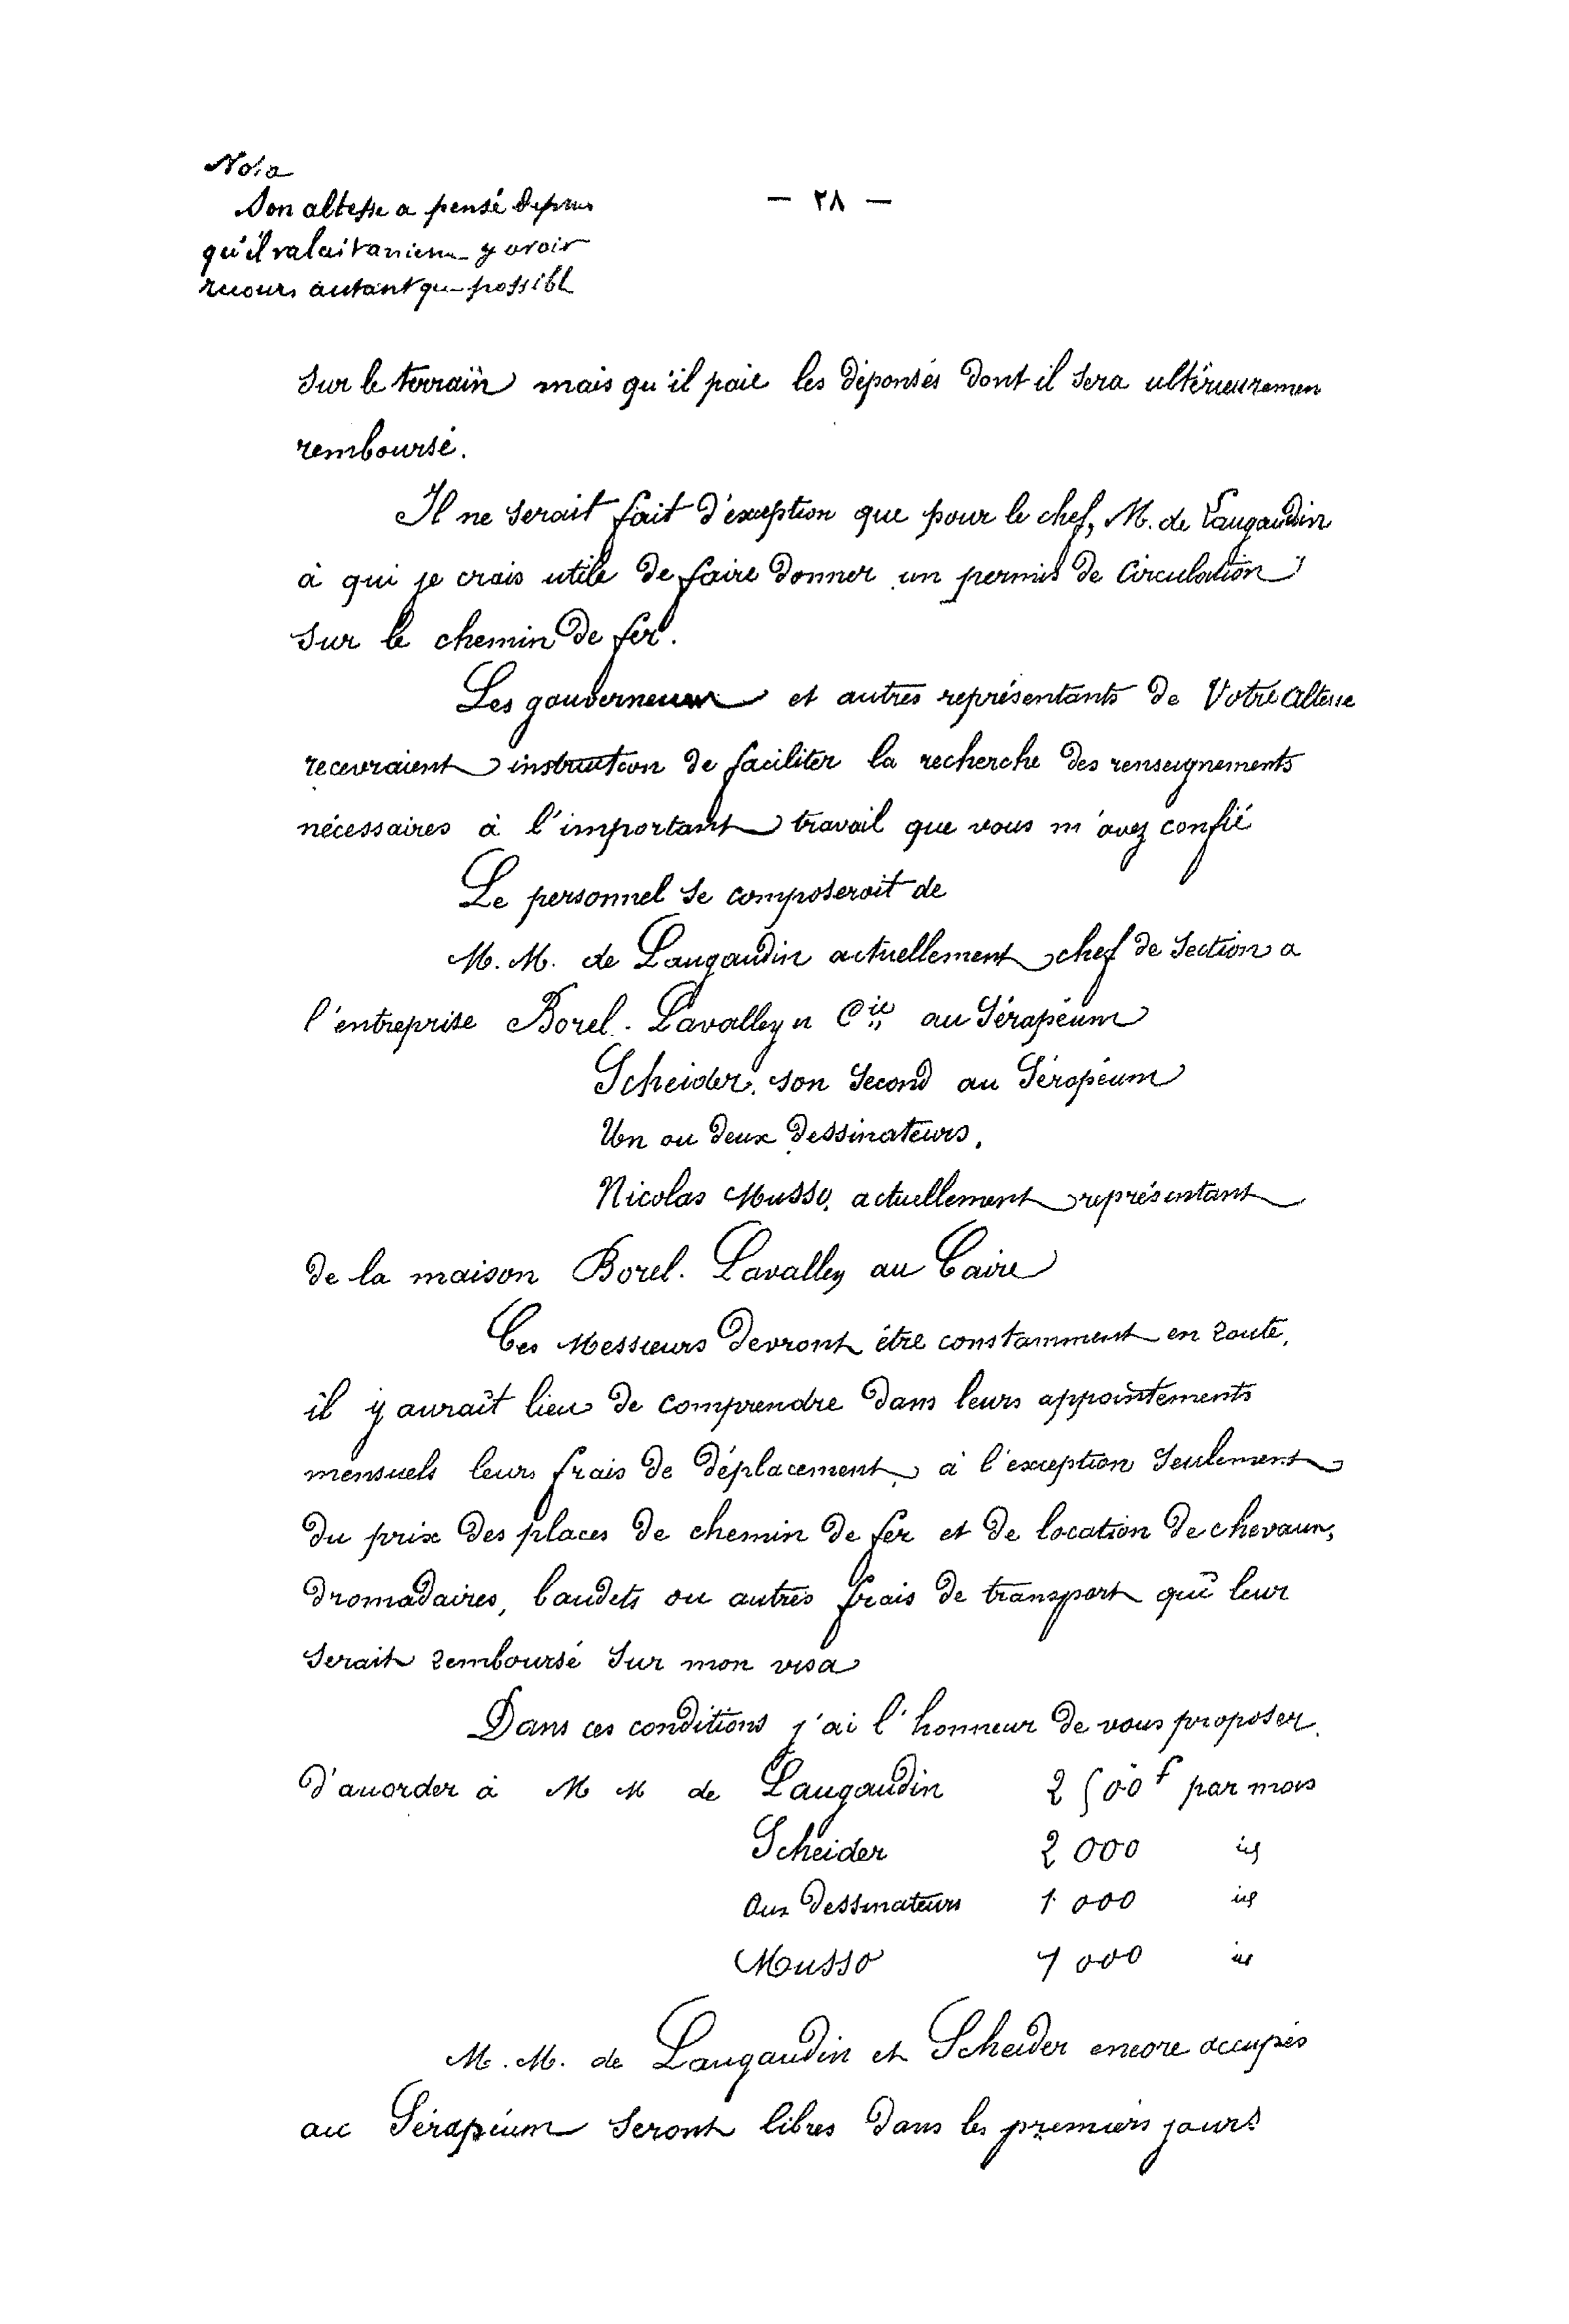 Nota
Son altesse a pensé depuis
qu'il valait mieux y avoir
recours autant que possible
— ٢٨ —
sur le terrain mais qu'il paie les dépenses dont il sera ultérieuremen
remboursé.
Il ne serait fait d'exception que pour le chef, M. de Laugaudin
à qui je crois utile de faire donner un permis de Circulation
sur le chemin de fer.
Les gouverneurs et autres représentants de Votre Altesse
recevraient instruction de faciliter la recherche des renseignements
nécessaires à l'important travail que vous m'avez confié
Le personnel se composerait de
M. M. de Laugaudin actuellement chef de Section a
l'entreprise Borel. Lavalley et Cie au Sérapéum
Scheider, son Second au Sérapéum
Un ou deux dessinateurs.
Nicolas Musso, actuellement représentant
de la maison Borel. Lavalley au Caire
Ces Messieurs devront être constamment en route,
il y aurait lieu de comprendre dans leurs appointements
mensuels leurs frais de déplacement, à l'exception seulement
du prix des places de chemin de fer et de location de chevaux,
dromadaires, baudets ou autres frais de transport qui leur
serait remboursé sur mon visa
Dans ces conditions j'ai l'honneur de vous proposer.
d'accorder à M M de Laugaudin 2500f par mois
Scheider 2000 id
Aux dessinateurs 1000 id
Musso 1000 id
M. M. de Laugaudin et Scheider encore occupés
au Sérapéum seront libres dans les premiers jours